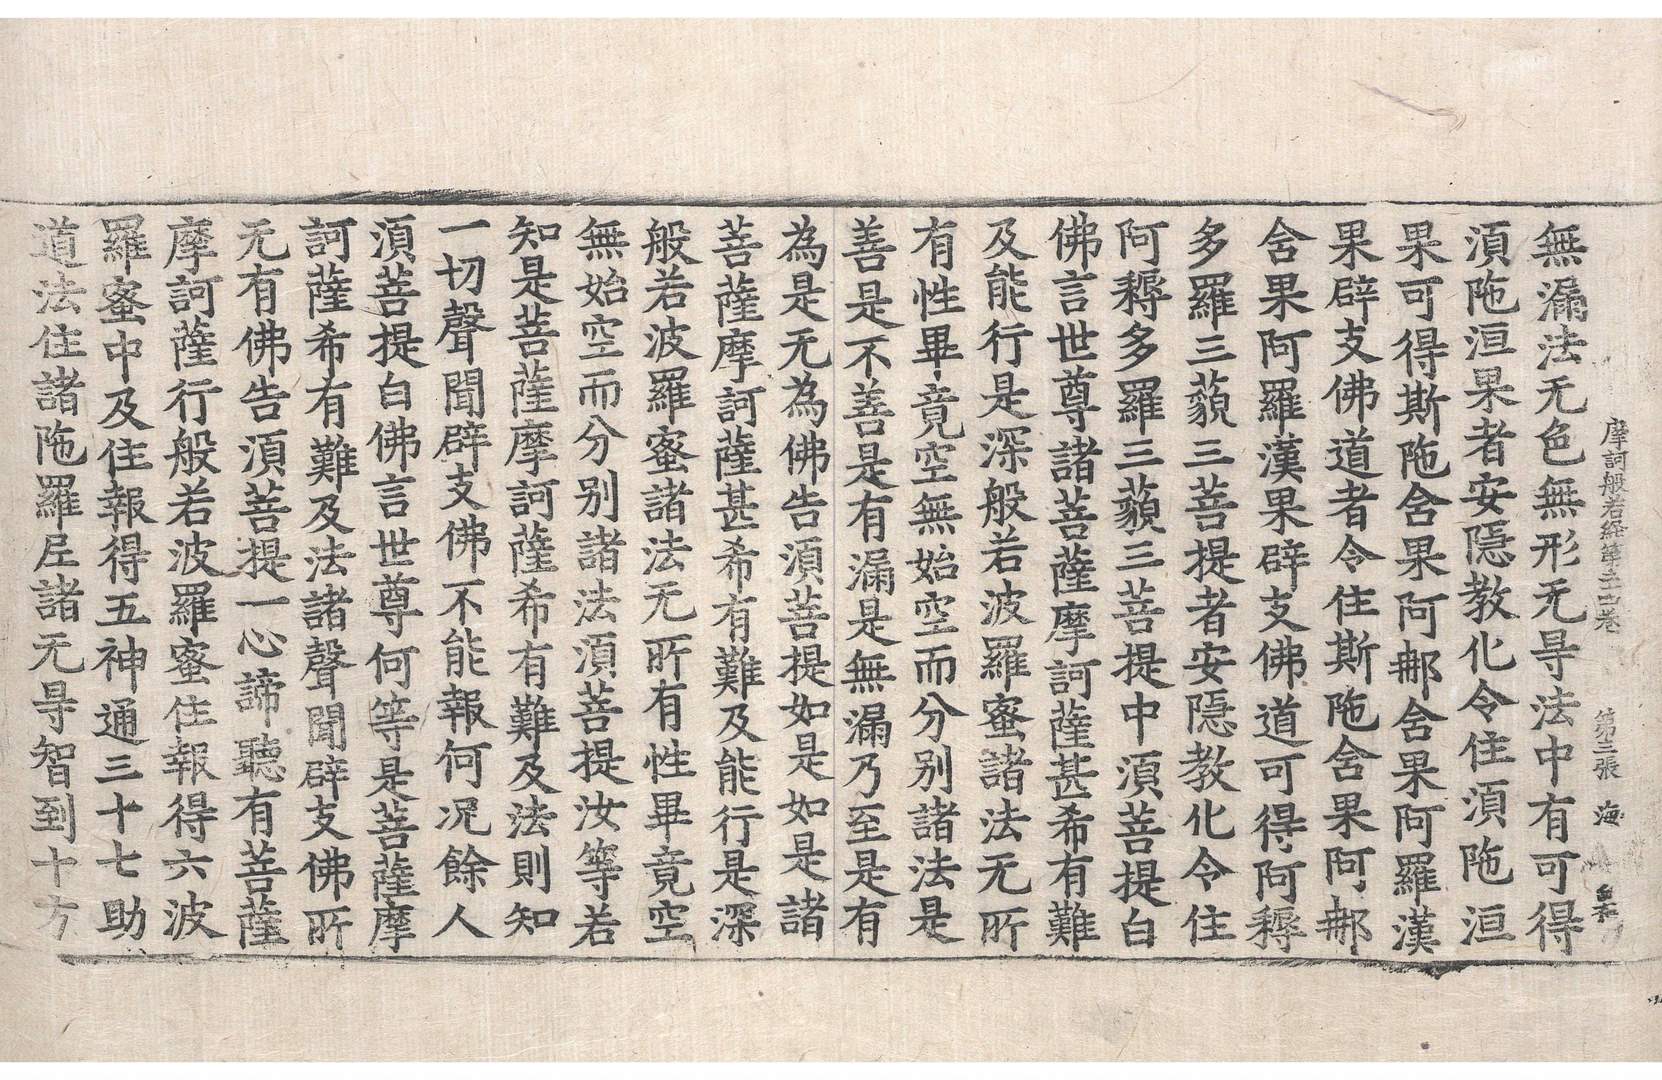 摩訶般若経第二十五巻 第三張 海
無漏法无色無形无㝵法中有可得
湏陁洹果者安隱教化令住湏陁洹
果可得斯陁含果阿那含果阿羅漢
果辟支佛道者令住斯陁含果阿那
含果阿羅漢果辟支佛道可得阿耨
多羅三藐三菩提者安隱教化令住
阿耨多羅三藐三菩提中湏菩提白
佛言世尊諸菩薩摩訶薩甚希有難
及能行是深般若波羅蜜諸法无所
有性畢竟空無始空而分别諸法是
善是不善是有漏是無漏乃至是有
為是无為佛告湏菩提如是如是諸
菩薩摩訶薩甚希有難及能行是深
般若波羅蜜諸法无所有性畢竟空
無始空而分别諸法湏菩提汝等若
知是菩薩摩訶薩希有難及法則知
一切聲聞辟支佛不能報何况餘人
湏菩提白佛言世尊何等是菩薩摩
訶薩希有難及法諸聲聞辟支佛所
无有佛告湏菩提一心諦聽有菩薩
摩訶薩行般若波羅蜜住報得六波
羅蜜中及住報得五神通三十七助
道法住諸陁羅尼諸无㝵智到十方